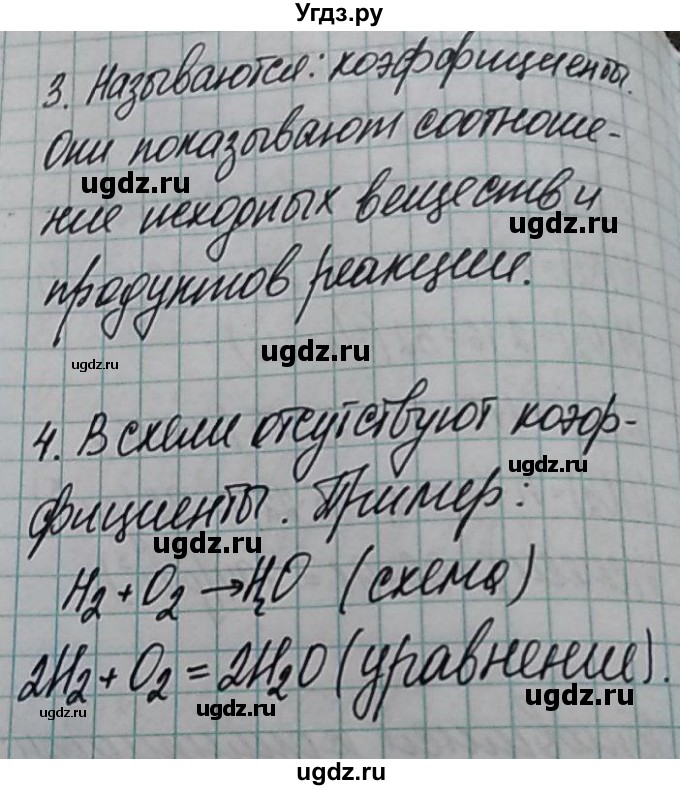 Угдз.ру
3. Называются: коэффициенты.
Они показывают соотноше-
ugdz.ru
ugdz.ru
ние исходных веществ и
продуктов реакции.
ugdz.ru
ugdz.ru
4. В схеми отсутствуют коэф-
ugdz.ru
фициенты. Пример:
ugdz.ru
H₂ + O₂ → H₂O (схема)
2H₂ + O₂ = 2H₂O (уравнение).
ugdz.ru
ugdz.ru
ugdz.ru
ugdz.ru